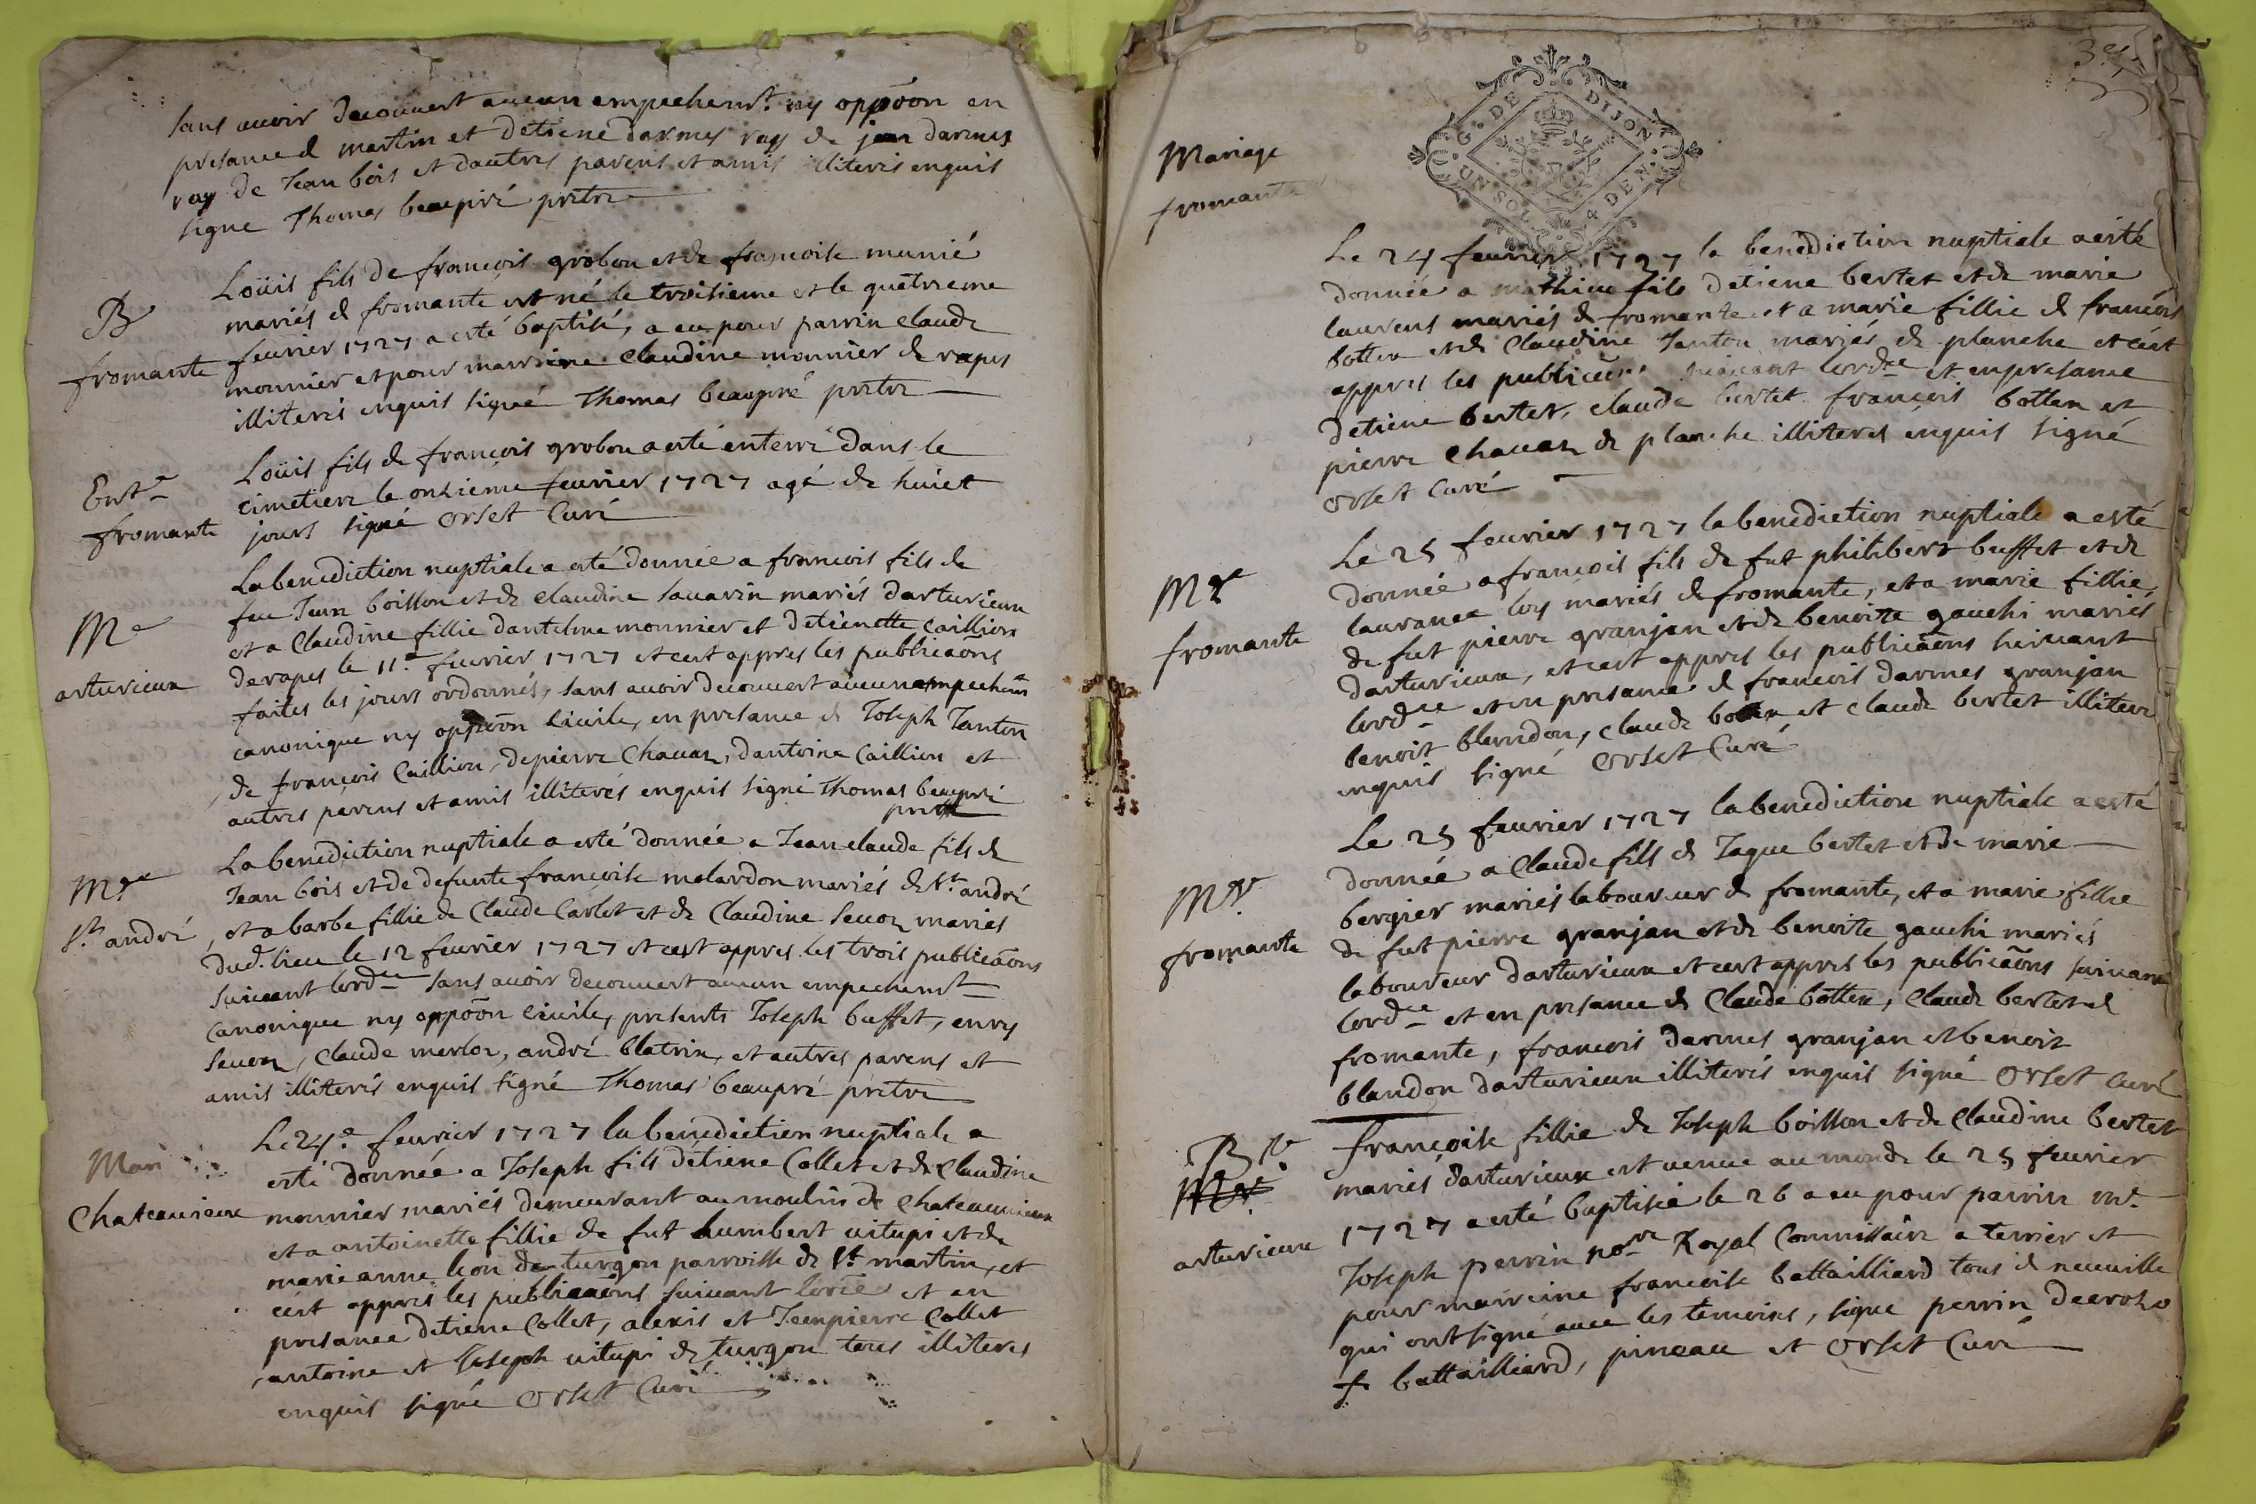 sans avoir decouvert aucun empechemt. ny oppõon en
presance d martin et detiene darmes ray de jean darmes
ray de Jean bois et dautres parens et amis illiteris enquis
signe Thomas beaupré pretre
B
fromante
Loüis fils de françois grobon et de françoise munié
mariés d fromante est né le troisieme et le quatrieme
feurier 1727 a esté baptisé, a eu pour parrin claude
monnier et pour marrine claudine monnier de rapes
illiteris enquis signé Thomas beaupré pretre
Ent.e
fromante
Loüis fils d françois grobon a esté enterré dans le
cimetiere le onzieme feurier 1727 agé de huict
jours signé orset Curé
M.e
arturieux
La benediction nuptiale a esté donnée a francois fils de
feu Jean boisson et de claudine sauarin mariés darturieux
et a Claudine fillie dantelme monnier et detienette Caillion
de rapes le 11.e feurier 1727 et cest appres les publicãons
faites les jours ordonnés, sans auoir decouuert aucun empechem
canonique ny oppõon ciuile, en presance d Joseph Janton
de françois Caillion, de pierre Chauan, dantoine Caillion et
autres parens et amis illiterés enquis signé Thomas beaupré
pretre
Mge
st. andré
La benediction nuptiale a esté donnée a Jean claude fils d
Jean bois et de defunte francoise molardon mariés de st. andré
et a barbe fillie de Claude Carlet et de Claudine seuoz mariés
dud. lieu le 12 feurier 1727 et cest appres les trois publicãons
suiuant lordce sans auoir decouuert aucun empechemt
canonique ny oppõon ciuile, presents Joseph buffet, emy
seuoz, Claude merloz, andré blatrix, et autres parens et
amis illiterés enquis signé Thomas beaupré pretre
Mari
Chateauieux
Le 24.e feurier 1727 la benediction nuptiale a
esté donnée a Joseph fils detiene Collet et de Claudine
monnier mariés demeurant au moulin de Chateauuieux
et a antoinette fillie de fut humbert uitupi et de
marie anne lion de turgon parroisse de st. martin, et
cest appres les publicãons suiuant lorce et en
presance detiene Collet, alexis et Jeanpierre Collet
antoine et Joseph uitupi de turgon tous illiteres
enquis signé orset Curé
3e
G. DE DIJON.
UN SOL 4 DEN.
Mariage
fromante
Le 24 feurier 1727 la benediction nuptiale a esté
donnée a mathieu fils detiene bertet et de marie
laurens mariés d fromante et a marie fillie d françois
botten et de Claudine Janton mariés de planche et cest
appres les publicãons suiuant lordce et en presance
detiene bertet, claude bertet françois botten et
pierre chauan de planche illiteres enquis signé
orset curé
Mge
fromante
Le 25 feurier 1727 la benediction nuptiale a esté
donnée a françois fils de fut philibert buffet et de
laurance loy mariés d fromante, et a marie fillie
de fut pierre granjan et de benoite gauchi mariés
darturieux, et cest appres les publicãons suiuant
lordce et en presance d françois darmes granjan
benoit blandon, claude botten et claude bertet illiteres
enquis signé orset Curé
Mge
fromante
Le 25 feurier 1727 la benediction nuptiale a esté
donnée a Claude fils d Jaque bertet et de marie
bergier mariés laboureur d fromante, et a marie fillie
de fut pierre granjan et de benoite gauchi mariés
laboureur darturieux et cest appres les publicãons suiuant
lordce et en presance d Claude botten, Claude bertet d
fromante, francois darmes granjan et benoit
blandon darturieux illiterés enquis signé orset Curé
Be
Mge
arturieux
françoise fillie de Joseph boisson et de Claudine bertet
mariés darturieux est uenue au monde le 25 feurier
1727 a esté baptisée le 26 a eu pour parrin mr.
Joseph perrin nore Royal Commissaire a terrier et
pour marreine francoise battailliard tous d neuuille
qui ont signé auec les temoins, signe perrin decrozo
f. battailliard, pineau et orset Curé